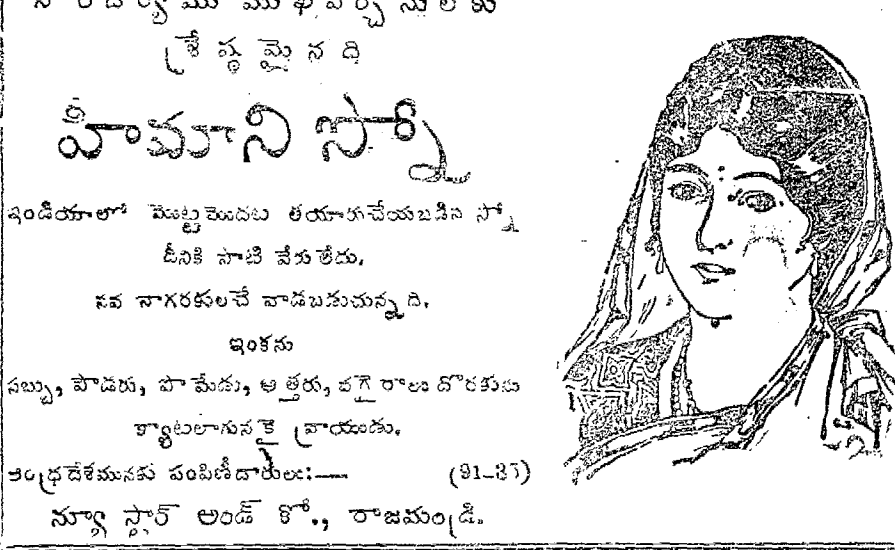 శ్రేష్ఠమైనది
హిమాని స్నో
ఇండియాలో మొట్టమొదట తయారుచేయబడిన స్నో
దీనికి సాటి వేరులేదు.
నవ నాగరకులచే వాడబడుచున్నది.
ఇంకను
సబ్బు, పౌడరు, పొమేడు, అత్తరు, వగైరాలు దొరకును
క్యాటలాగునకై వ్రాయుడు.
ఆంధ్రదేశమునకు పంపిణీదారులు:—
న్యూ స్టార్ అండ్ కో., రాజమండ్రి.